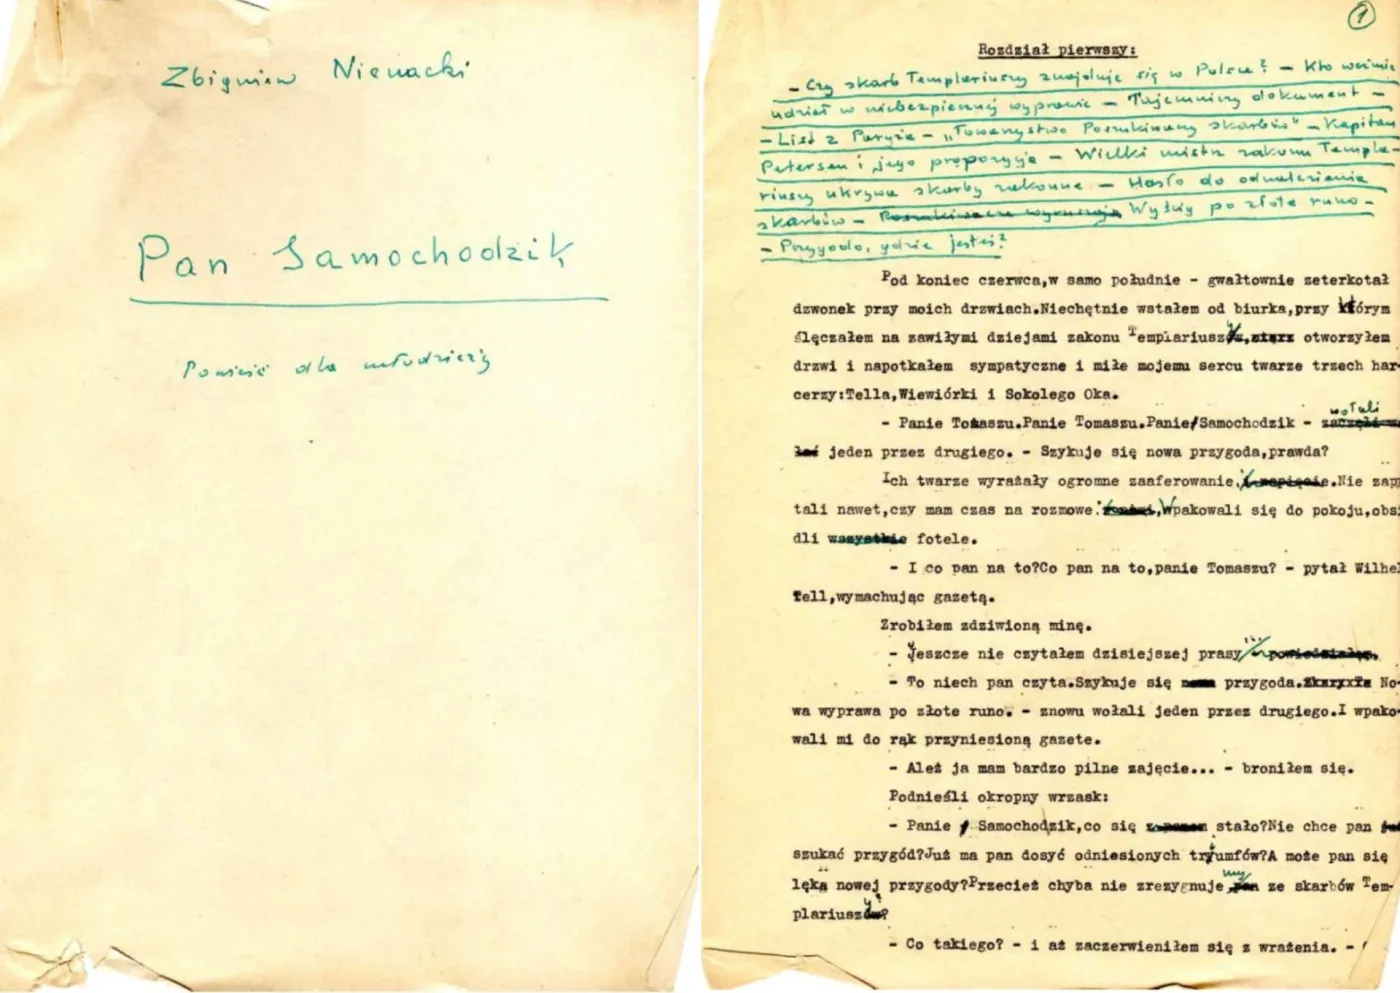 Zbigniew Nienacki
Pan Samochodzik
Powieść dla młodzieży
1
Rozdział pierwszy:
- Czy skarb Templariuszy znajduje się w Polsce? - Kto weźmie
udział w niebezpiecznej wyprawie - Tajemniczy dokument -
- List z Paryża - "Towarzystwo Poszukiwaczy skarbów" - Kapitan
Petersen i jego propozycja - Wielki mistrz zakonu Templa-
riuszy ukrywa skarby zakonne - Hasło do odnalezienia
skarbów - Poszukiwacze wyruszają Wyścig po złote runo -
- Przygodo, gdzie jesteś?
Pod koniec czerwca,w samo południe - gwałtownie zeterkotał
dzwonek przy moich drzwiach.Niechętnie wstałem od biurka,przy którym
ślęczałem na zawiłymi dziejami zakonu Templariuszy, otworzyłem
drzwi i napotkałem sympatyczne i miłe mojemu sercu twarze trzech har-
cerzy:Tella,Wiewiórki i Sokolego Oka.
- Panie Tomaszu.Panie Tomaszu.Panie Samochodzik - wołali
jeden przez drugiego. - Szykuje się nowa przygoda,prawda?
Ich twarze wyrażały ogromne zaaferowanie.Nie zapy
tali nawet,czy mam czas na rozmowe. Wpakowali się do pokoju,obsi
dli wszystkie fotele.
- I co pan na to?Co pan na to,panie Tomaszu? - pytał Wilhel
Tell,wymachując gazetą.
Zrobiłem zdziwioną minę.
- Jeszcze nie czytałem dzisiejszej prasy... powiedziałem.
- To niech pan czyta.Szykuje się nowa przygoda. No-
wa wyprawa po złote runo. - znowu wołali jeden przez drugiego.I wpako-
wali mi do rąk przyniesioną gazete.
- Ależ ja mam bardzo pilne zajęcie... - broniłem się.
Podnieśli okropny wrzask:
- Panie Samochodzik,co się stało?Nie chce pan już
szukać przygód?Już ma pan dosyć odniesionych tryumfów?A może pan się
lęka nowej przygody?Przecież chyba nie zrezygnujemy ze skarbów Tem-
plariuszy?
- Co takiego? - i aż zaczerwieniłem się z wrażenia. -